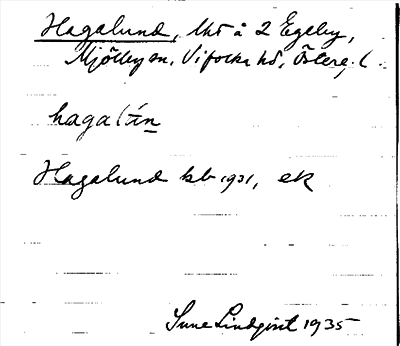 Hagalund, lht å 2 Egeby,
Mjölby sn, Vifolka hd, Österg. l.
haga
Hagalund kb 1931, ek
Sune Lindqvist 1935